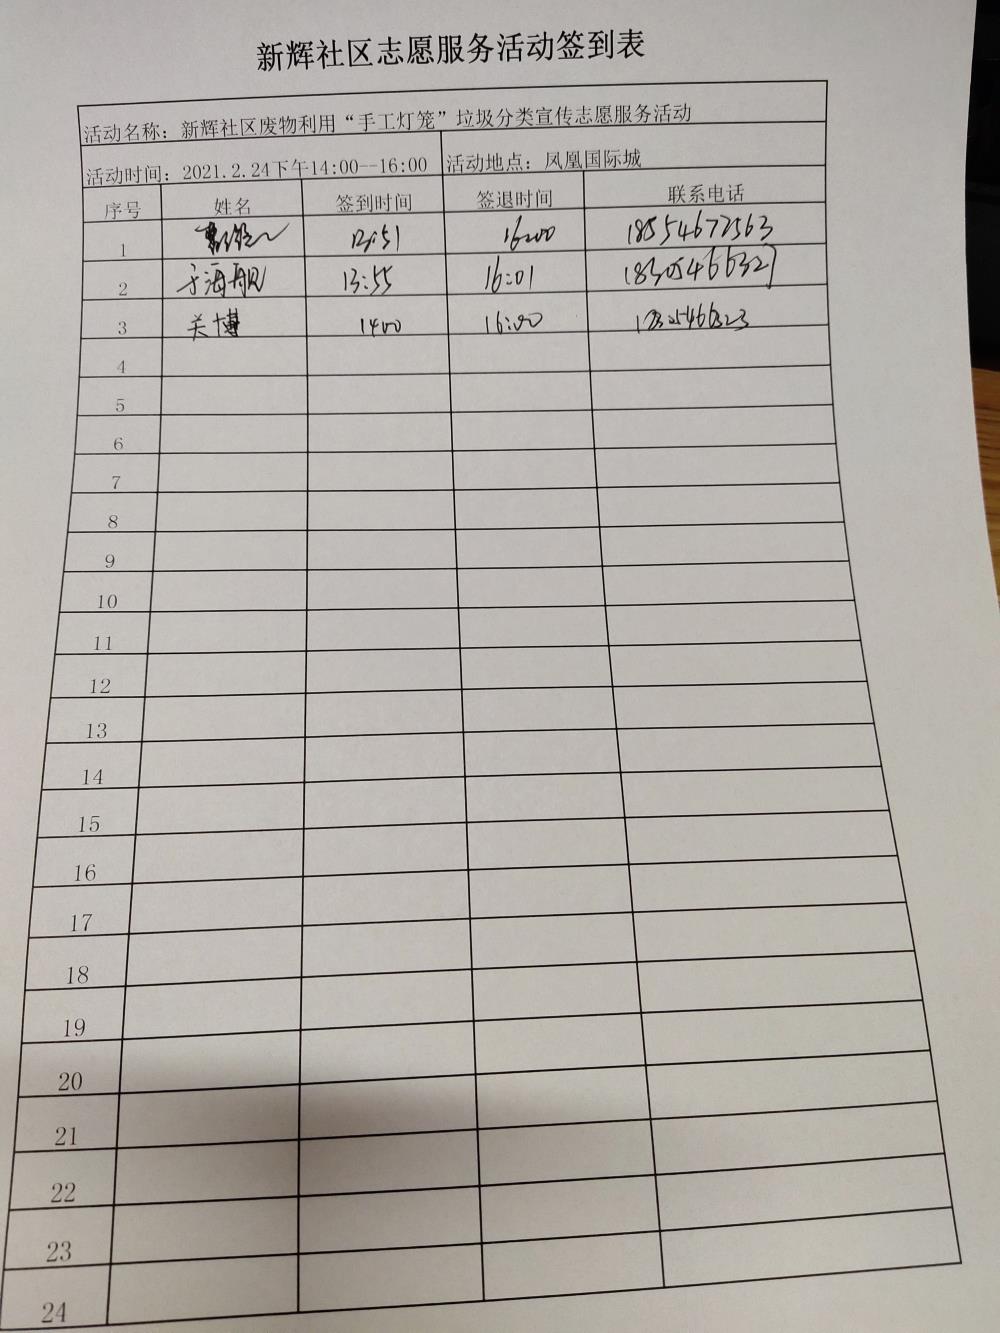 新辉社区志愿服务活动签到表
活动名称：新辉社区废物利用“手工灯笼”垃圾分类宣传志愿服务活动
活动时间：2021.2.24下午14:00--16:00 活动地点：凤凰国际城
序号 姓名 签到时间 签退时间 联系电话
1 16:00 18554672563
2 于海舰 13:55 16:01 18305466327
3 关博 1400 16:00
4
5
6
7
8
9
10
11
12
13
14
15
16
17
18
19
20
21
22
23
24